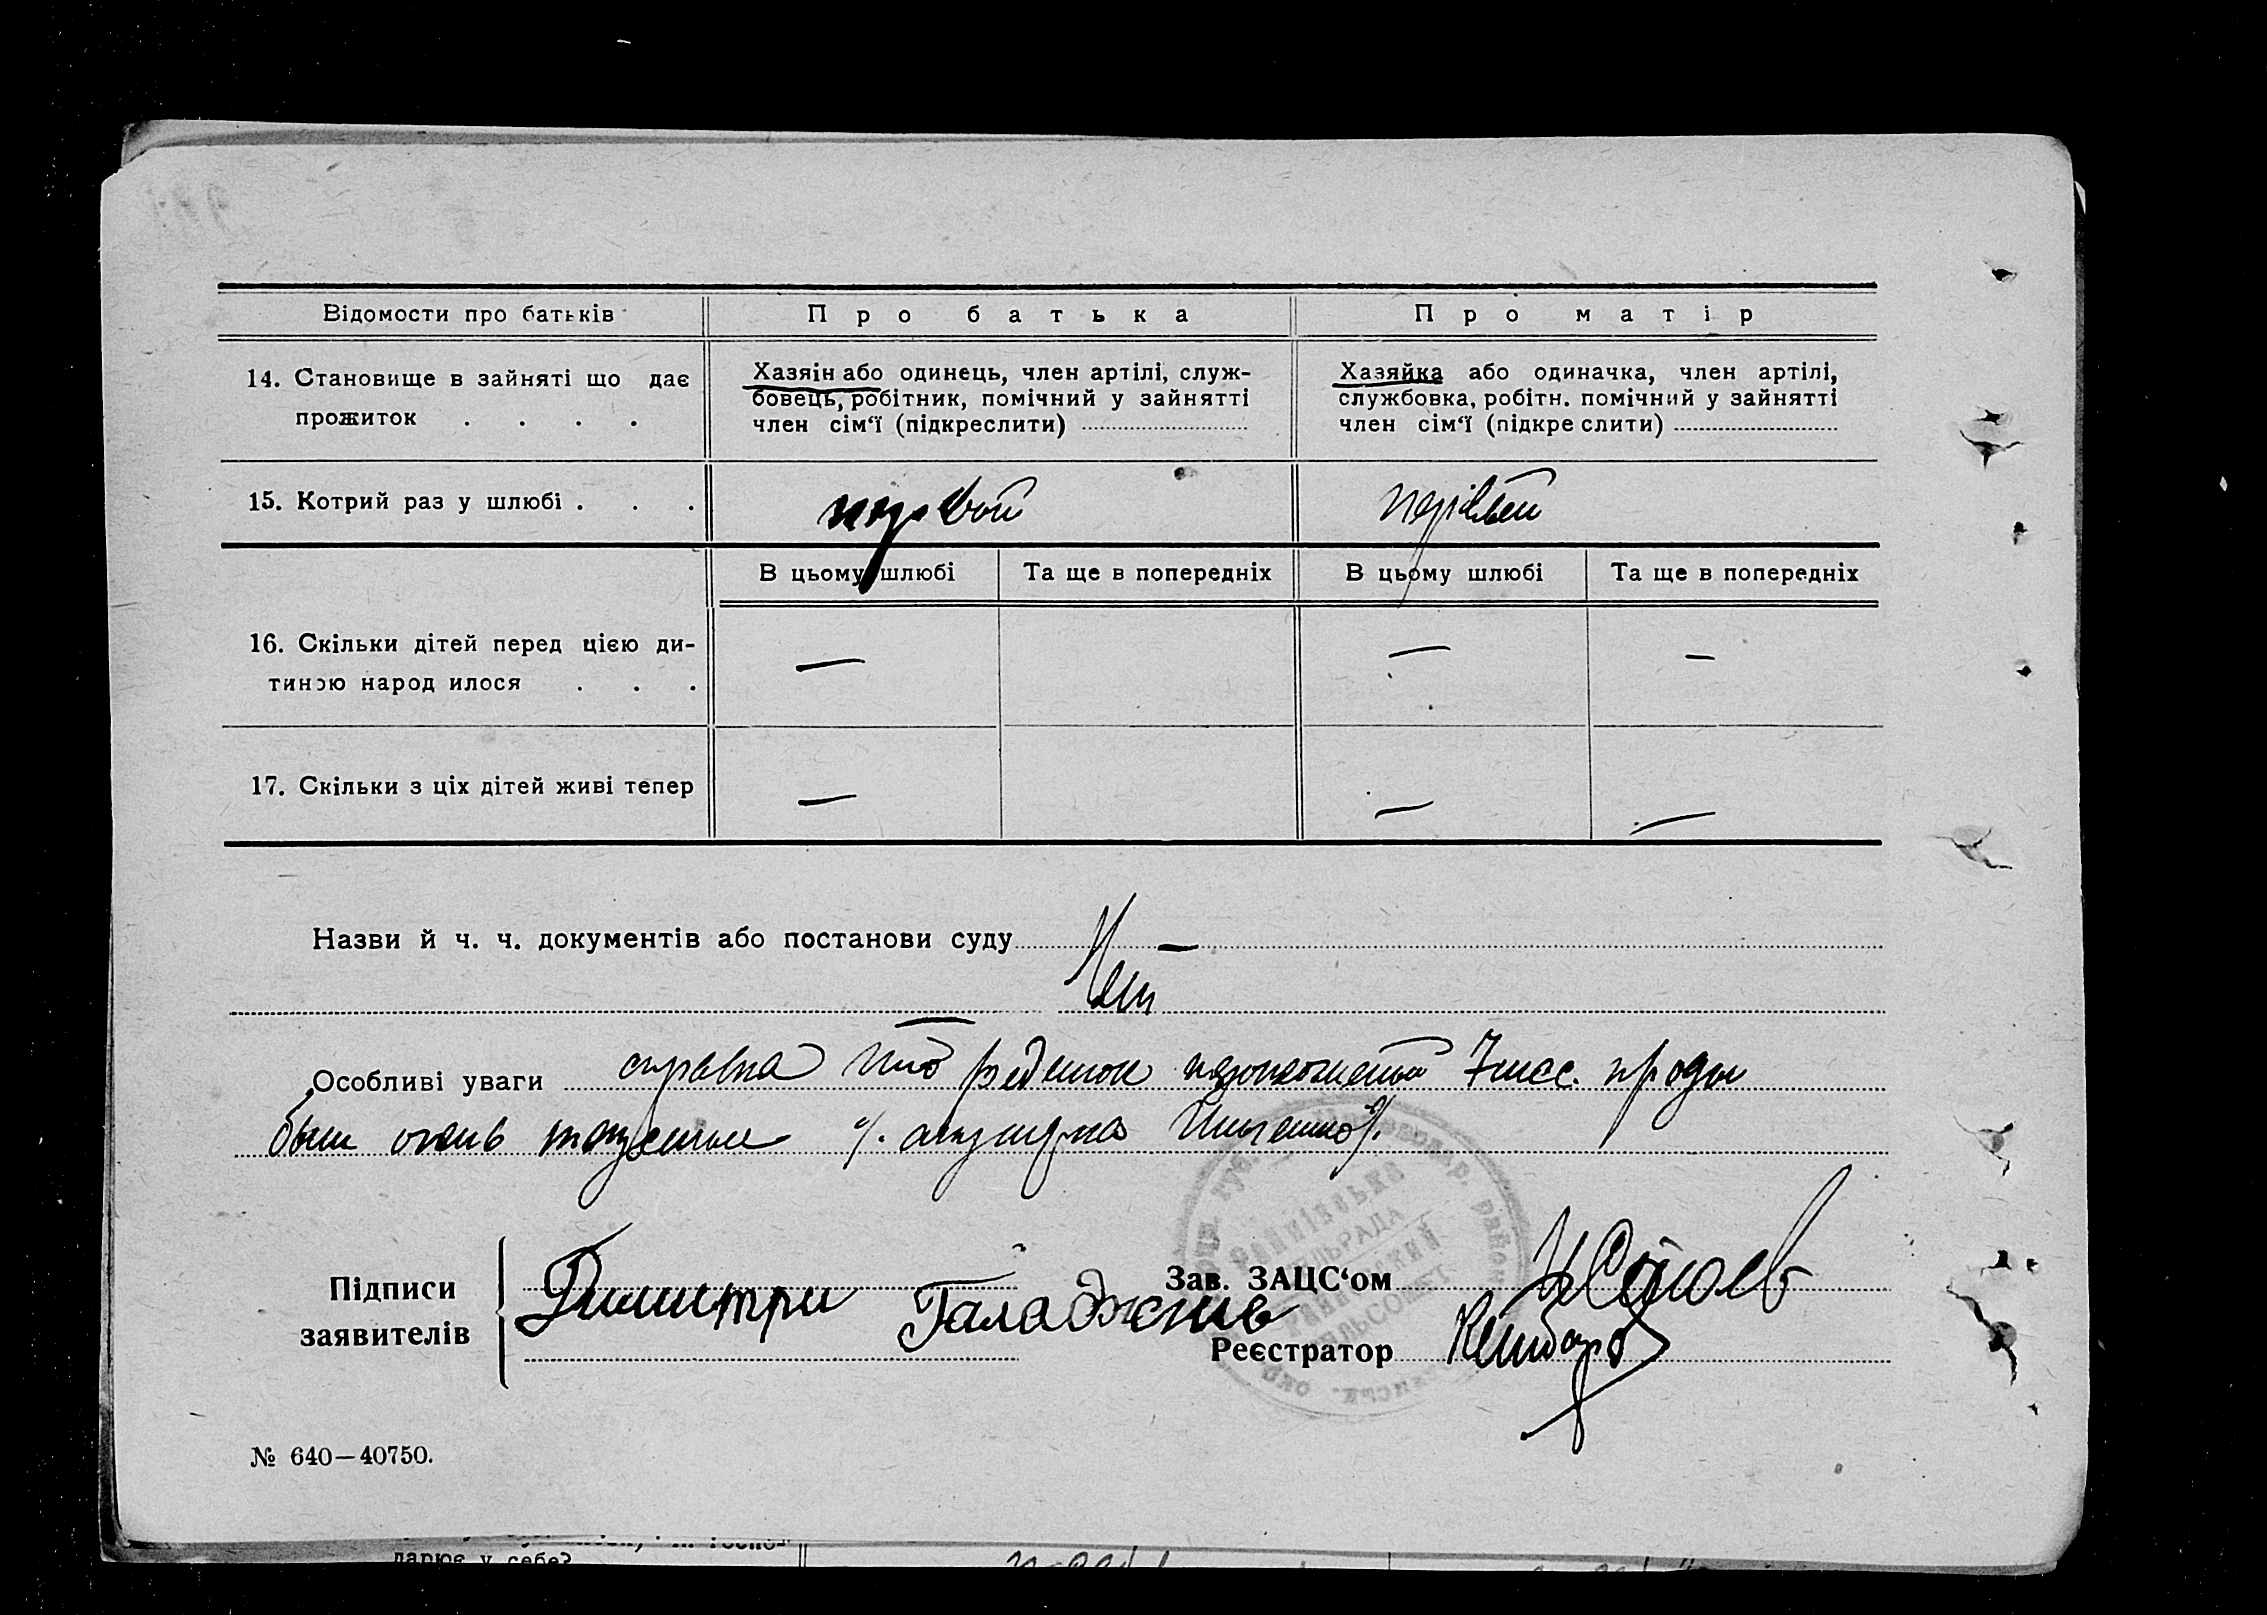 Відомости про батьків
Про батька
Про матір
14. Становище в зайняті що дає
прожиток . . . .
Хазяїн або одинець, член артілі, служ-
бовець, робітник, помічний у зайнятті
член сім‘ї (підкреслити)
Хазяйка або одиначка, член артілі,
службовка, робітн. помічний у зайнятті
член сім‘ї (підкреслити)
15. Котрий раз у шлюбі . . .
первой
первый
В цьому шлюбі
Та ще в попередніх
В цьому шлюбі
Та ще в попередніх
16. Скільки дітей перед цією ди-
тиною народилося . . .
— — —
17. Скільки з ціх дітей живі тепер
— — —
Назви й ч. ч. документів або постанови суду —
Нет
Особливі уваги справка что 7 мес. Роды
были очень
Підписи
заявителів
Димитри Галаджив
Зав. ЗАЦС‘ом
Реєстратор
СІЛЬРАДА
№ 640—40750.
дарює у себе?